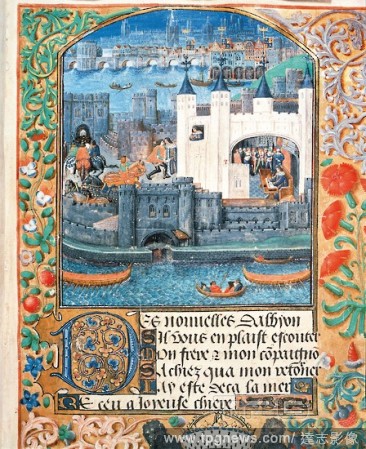 Des nouvelles dalbyon
Sil vous en plaist escouter
Mon frere & mon cõpaignõ
Sachiez qua mon retorner
Jay este deca la mer
Receu a joyeuse chiere
www.tpgnews.com/ 達志影像